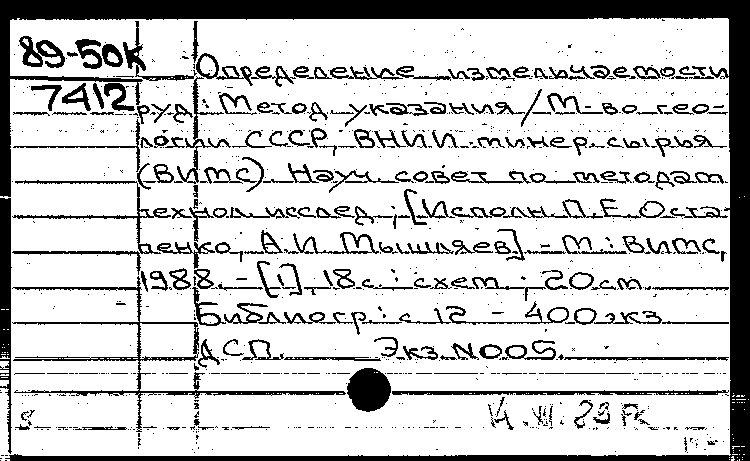 89-50К
7412
Определение измельчаемости
руд: Метод. указания / М-во гео-
логии СССР, ВНИИ минер. сырья
(ВИМС). Науч. совет по методам
технол. исслед.; [Исполн. П.Е. Оста-
пенко, А.И. Мышляев]. - М.: ВИМС,
1988. - [1], 18с.: схем.; 20см.
Библиогр.: с. 18 - 400экз.
ДСП. Экз. N005.